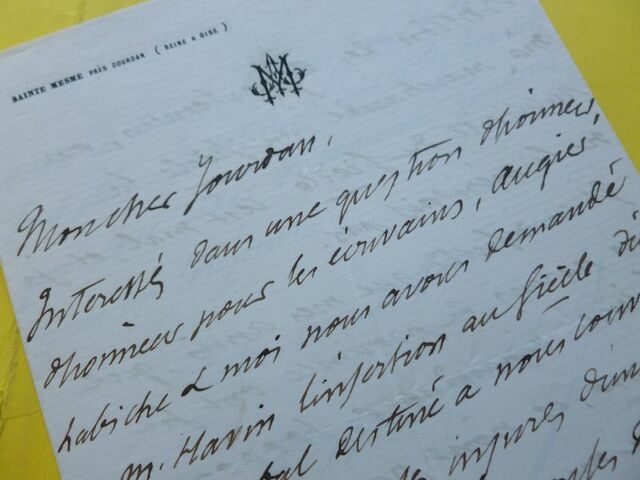 SAINTE MESME PRÈS DOURDAN ( SEINE & OISE )
Mon cher Jourdan,
Interessés dans une question d'honneur,
d'honneur pour les écrivains, Augier,
Labiche & moi nous avons demandé
M. Havin l'insertion au Siècle du
bal destiné à nous
injures